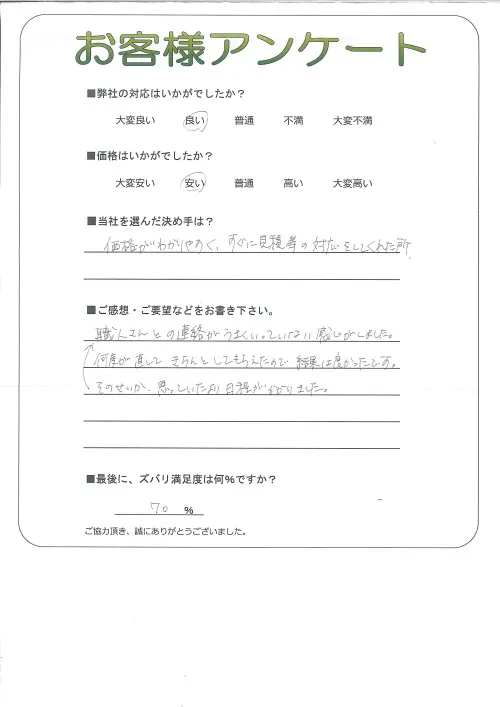 お客様アンケート
■弊社の対応はいかがでしたか？
大変良い 良い 普通 不満 大変不満
■価格はいかがでしたか？
大変安い 安い 普通 高い 大変高い
■当社を選んだ決め手は？
価格がわかりやすく、すぐに見積等の対応をしてくれた所
■ご感想・ご要望などをお書き下さい。
職人さんとの連絡がうまくいっていない感じがしました。
何度か直してきちんとしてもらえたので結果は良かったです。
そのせいか、思っていたより日程がかかりました。
■最後に、ズバリ満足度は何％ですか？
70 ％
ご協力頂き、誠にありがとうございました。